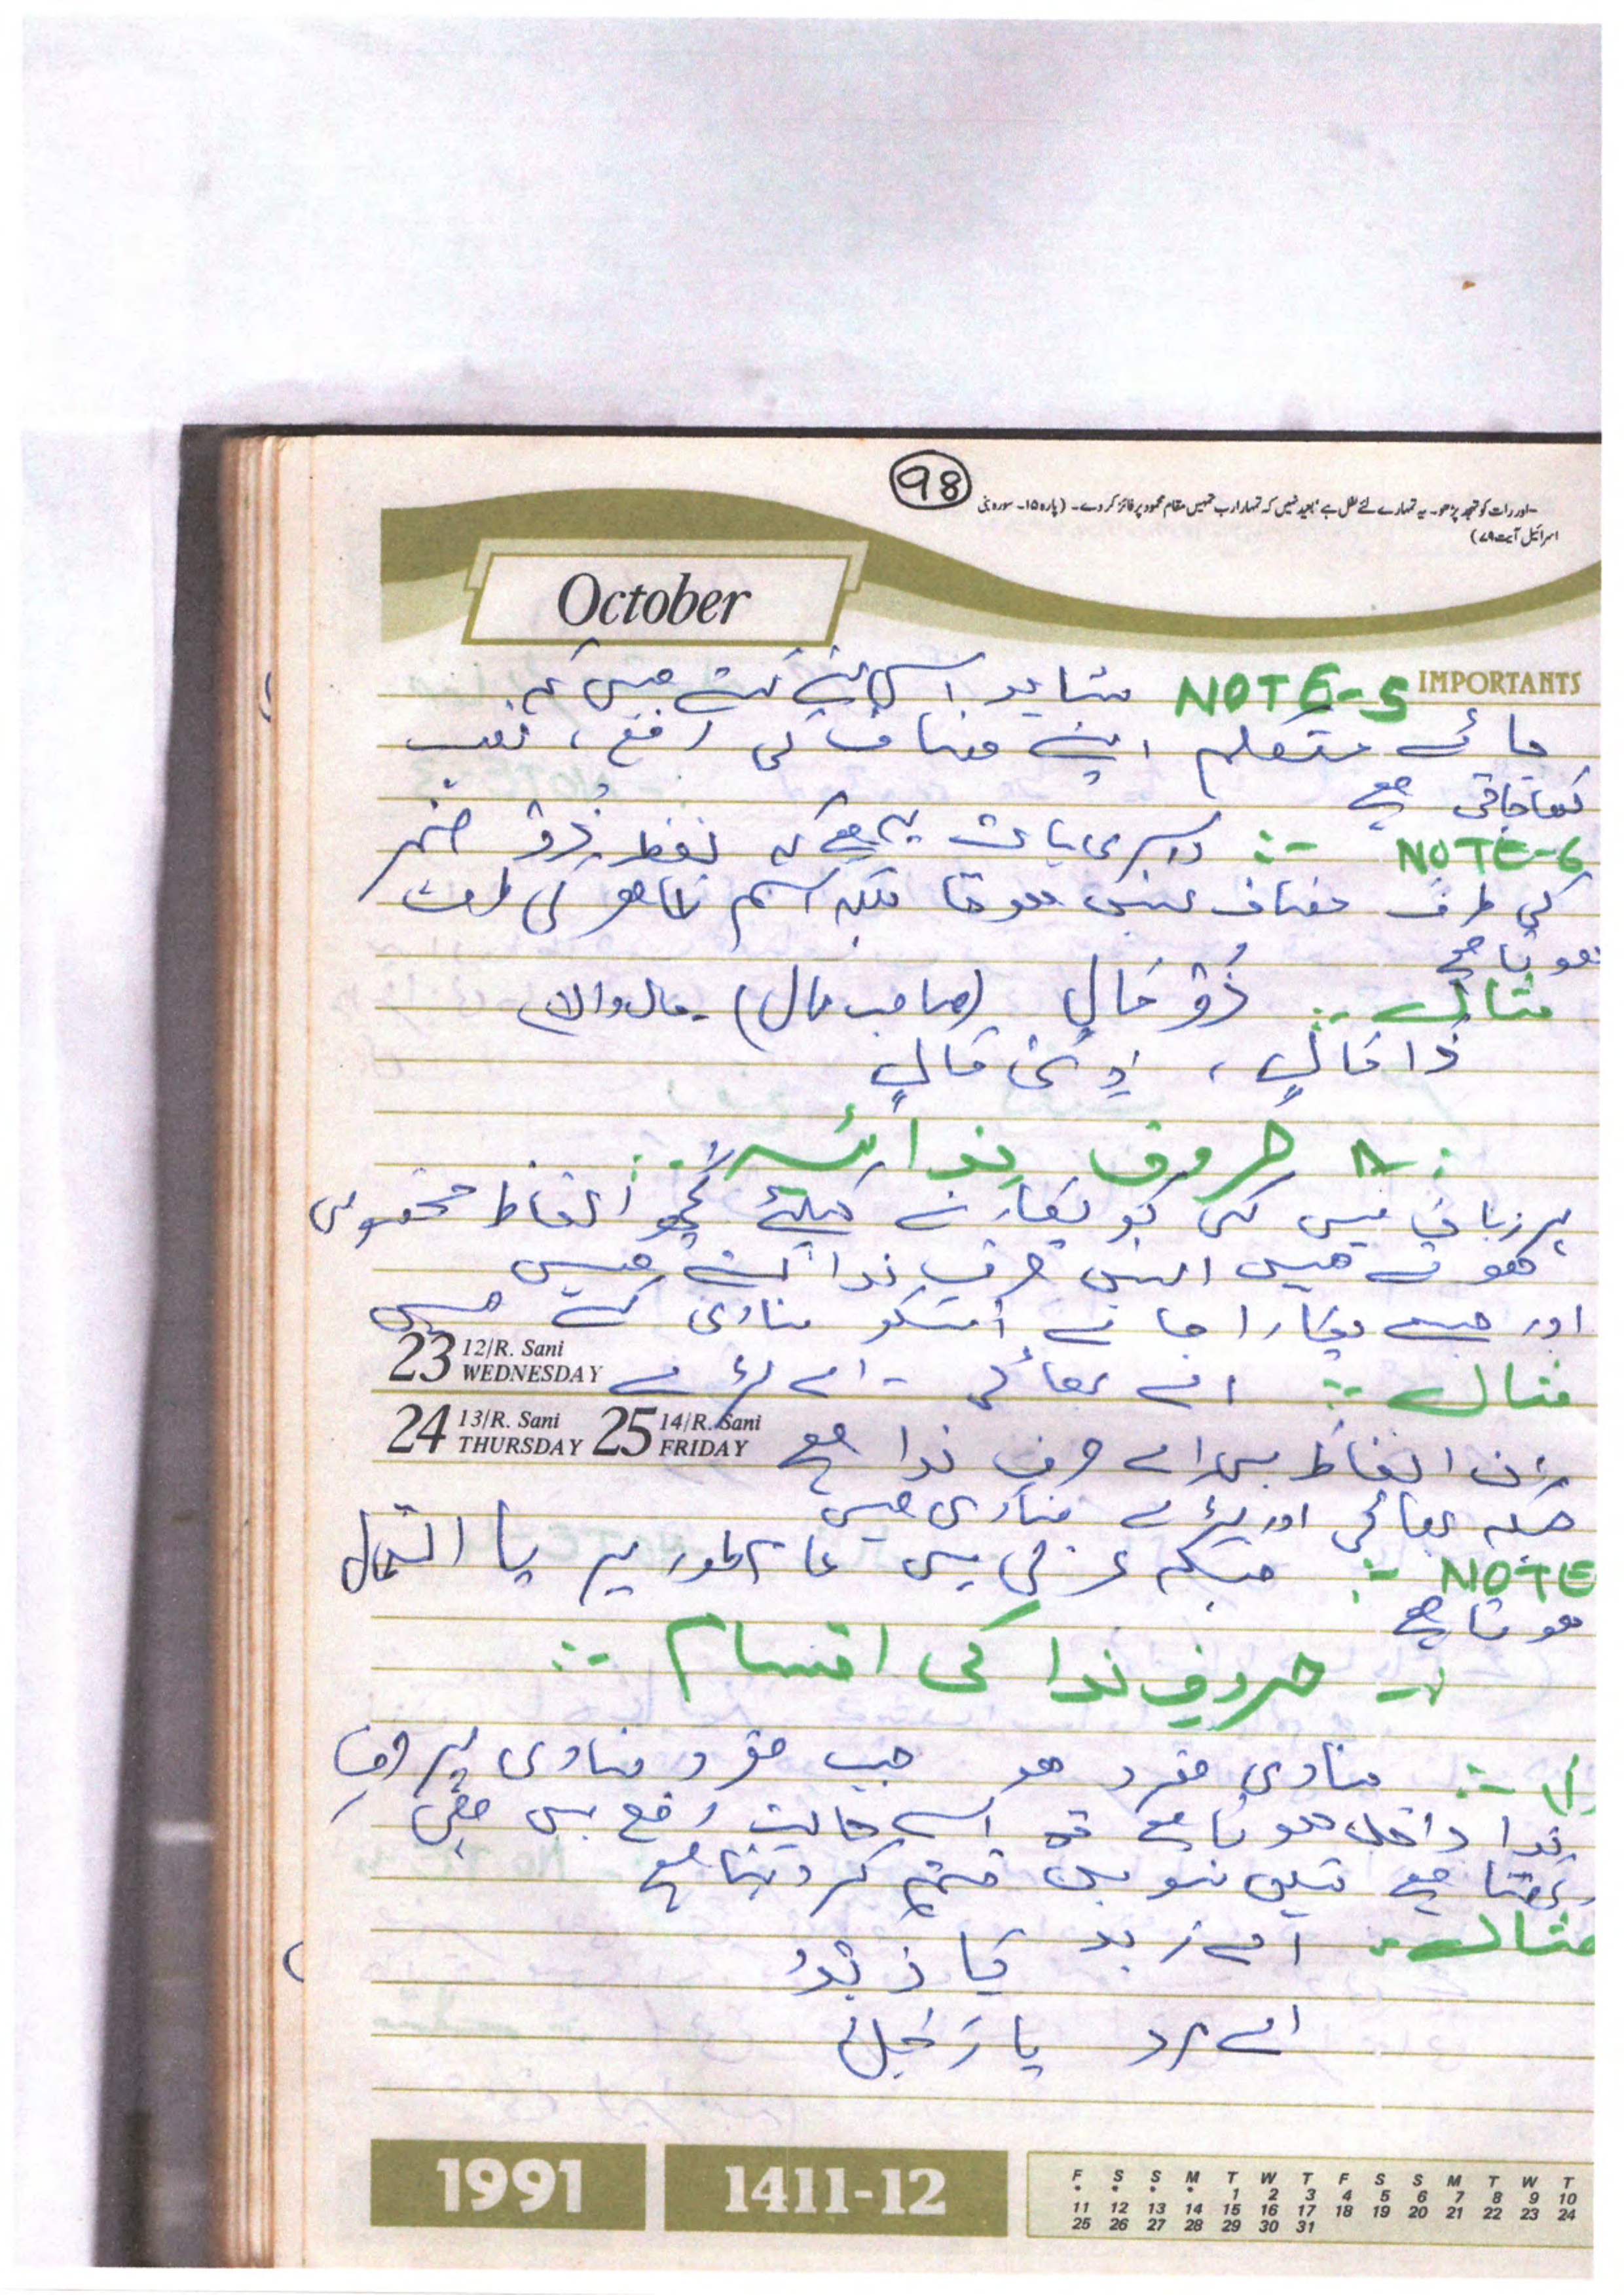 98
-اور رات کو تہجد پڑھو۔ یہ تمہارے لئے نفل ہے بعید نہیں کہ تمہارا رب تمہیں مقام محمود پر فائز کر دے۔ (پارہ ۱۵۔ سورہ بنی
اسرائیل آیت ۷۹)
October
IMPORTANTS
NOTE-5 شاید اسی لئے کہتے ہیں کہ
متکلم اپنے مضاف کی رفع، نصب
کھا جاتی ہے
NOTE-6 :- دوسری بات یہ ہے کہ لفظ ذُوْ ضمیر
کی طرف مضاف نہیں ہوتا بلکہ اسم ظاہر کی طرف
ہوتا ہے
مثال :- ذُوْ مَالٍ (صاحب مال) - مال والا
ذَا مَالٍ ، ذِیْ مَالٍ
حروف ندائیہ :-
ہر زبان میں کسی کو پکارنے کیلئے کچھ الفاظ مخصوص
ہوتے ہیں انہیں حرف ندا کہتے ہیں
اور جسے پکارا جائے اسکو منادی کہتے ہیں
مثال :- اے بھائی - اے لڑکے
23 12/R. Sani WEDNESDAY
24 13/R. Sani THURSDAY 25 14/R. Sani FRIDAY
ان الفاظ میں اے حرف ندا ہے
جبکہ بھائی اور لڑکے منادی ہیں
NOTE :- جبکہ عربی میں عام طور پر یا استعمال
ہوتا ہے
حروف ندا کی اقسام :-
:- منادی مفرد ہو جب مفرد منادی پر حرف
ندا داخل ہوتا ہے تو اسے حالت رفع میں ہی
رکھتا ہے لیکن تنوین ختم کر دیتا ہے
مثال :- اے زید یَا زَیْدُ
اے مرد یا رَجُلُ
1991
1411-12
F S S M T W T F S S M T W T
* * * * 1 2 3 4 5 6 7 8 9 10
11 12 13 14 15 16 17 18 19 20 21 22 23 24
25 26 27 28 29 30 31